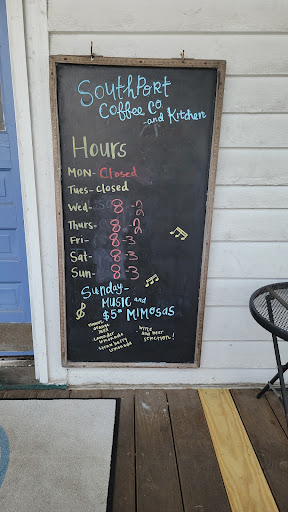 Southport
Coffee Co
-and Kitchen
Hours
MON- Closed
Tues- closed
Wed- 8-2
Thurs- 8-2
Fri- 8-3
Sat- 8-3
Sun- 8-3
Sunday-
MUSIC and
$5.00 MIMOSAS
orange
juice
Lavender
lemonade
strawberry
lemonade
wine
and beer
selection!